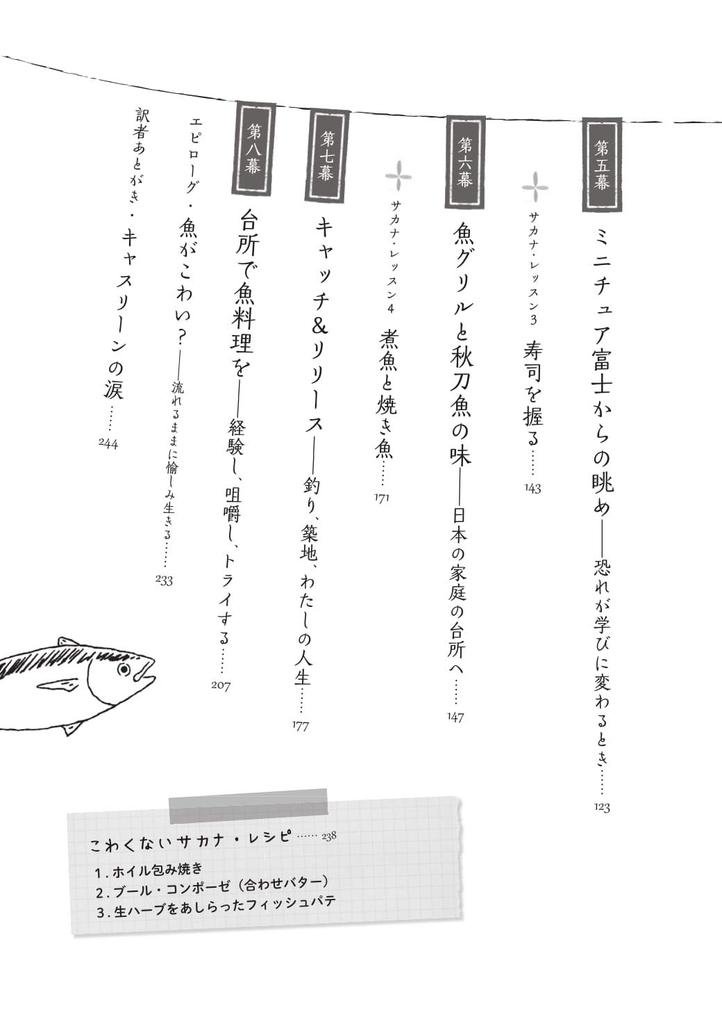 第五幕
ミニチュア富士からの眺め――恐れが学びに変わるとき……123
サカナ・レッスン3 寿司を握る……143
第六幕
魚グリルと秋刀魚の味――日本の家庭の台所へ……147
サカナ・レッスン4 煮魚と焼き魚……171
第七幕
キャッチ&リリース――釣り、築地、わたしの人生……177
第八幕
台所で魚料理を――経験し、咀嚼し、トライする……207
エピローグ・魚がこわい?――流れるままに愉しみ生きる……233
訳者あとがき・キャスリーンの涙……244
こわくないサカナ・レシピ……238
1.ホイル包み焼き
2.ブール・コンポーゼ(合わせバター)
3.生ハーブをあしらったフィッシュパテ